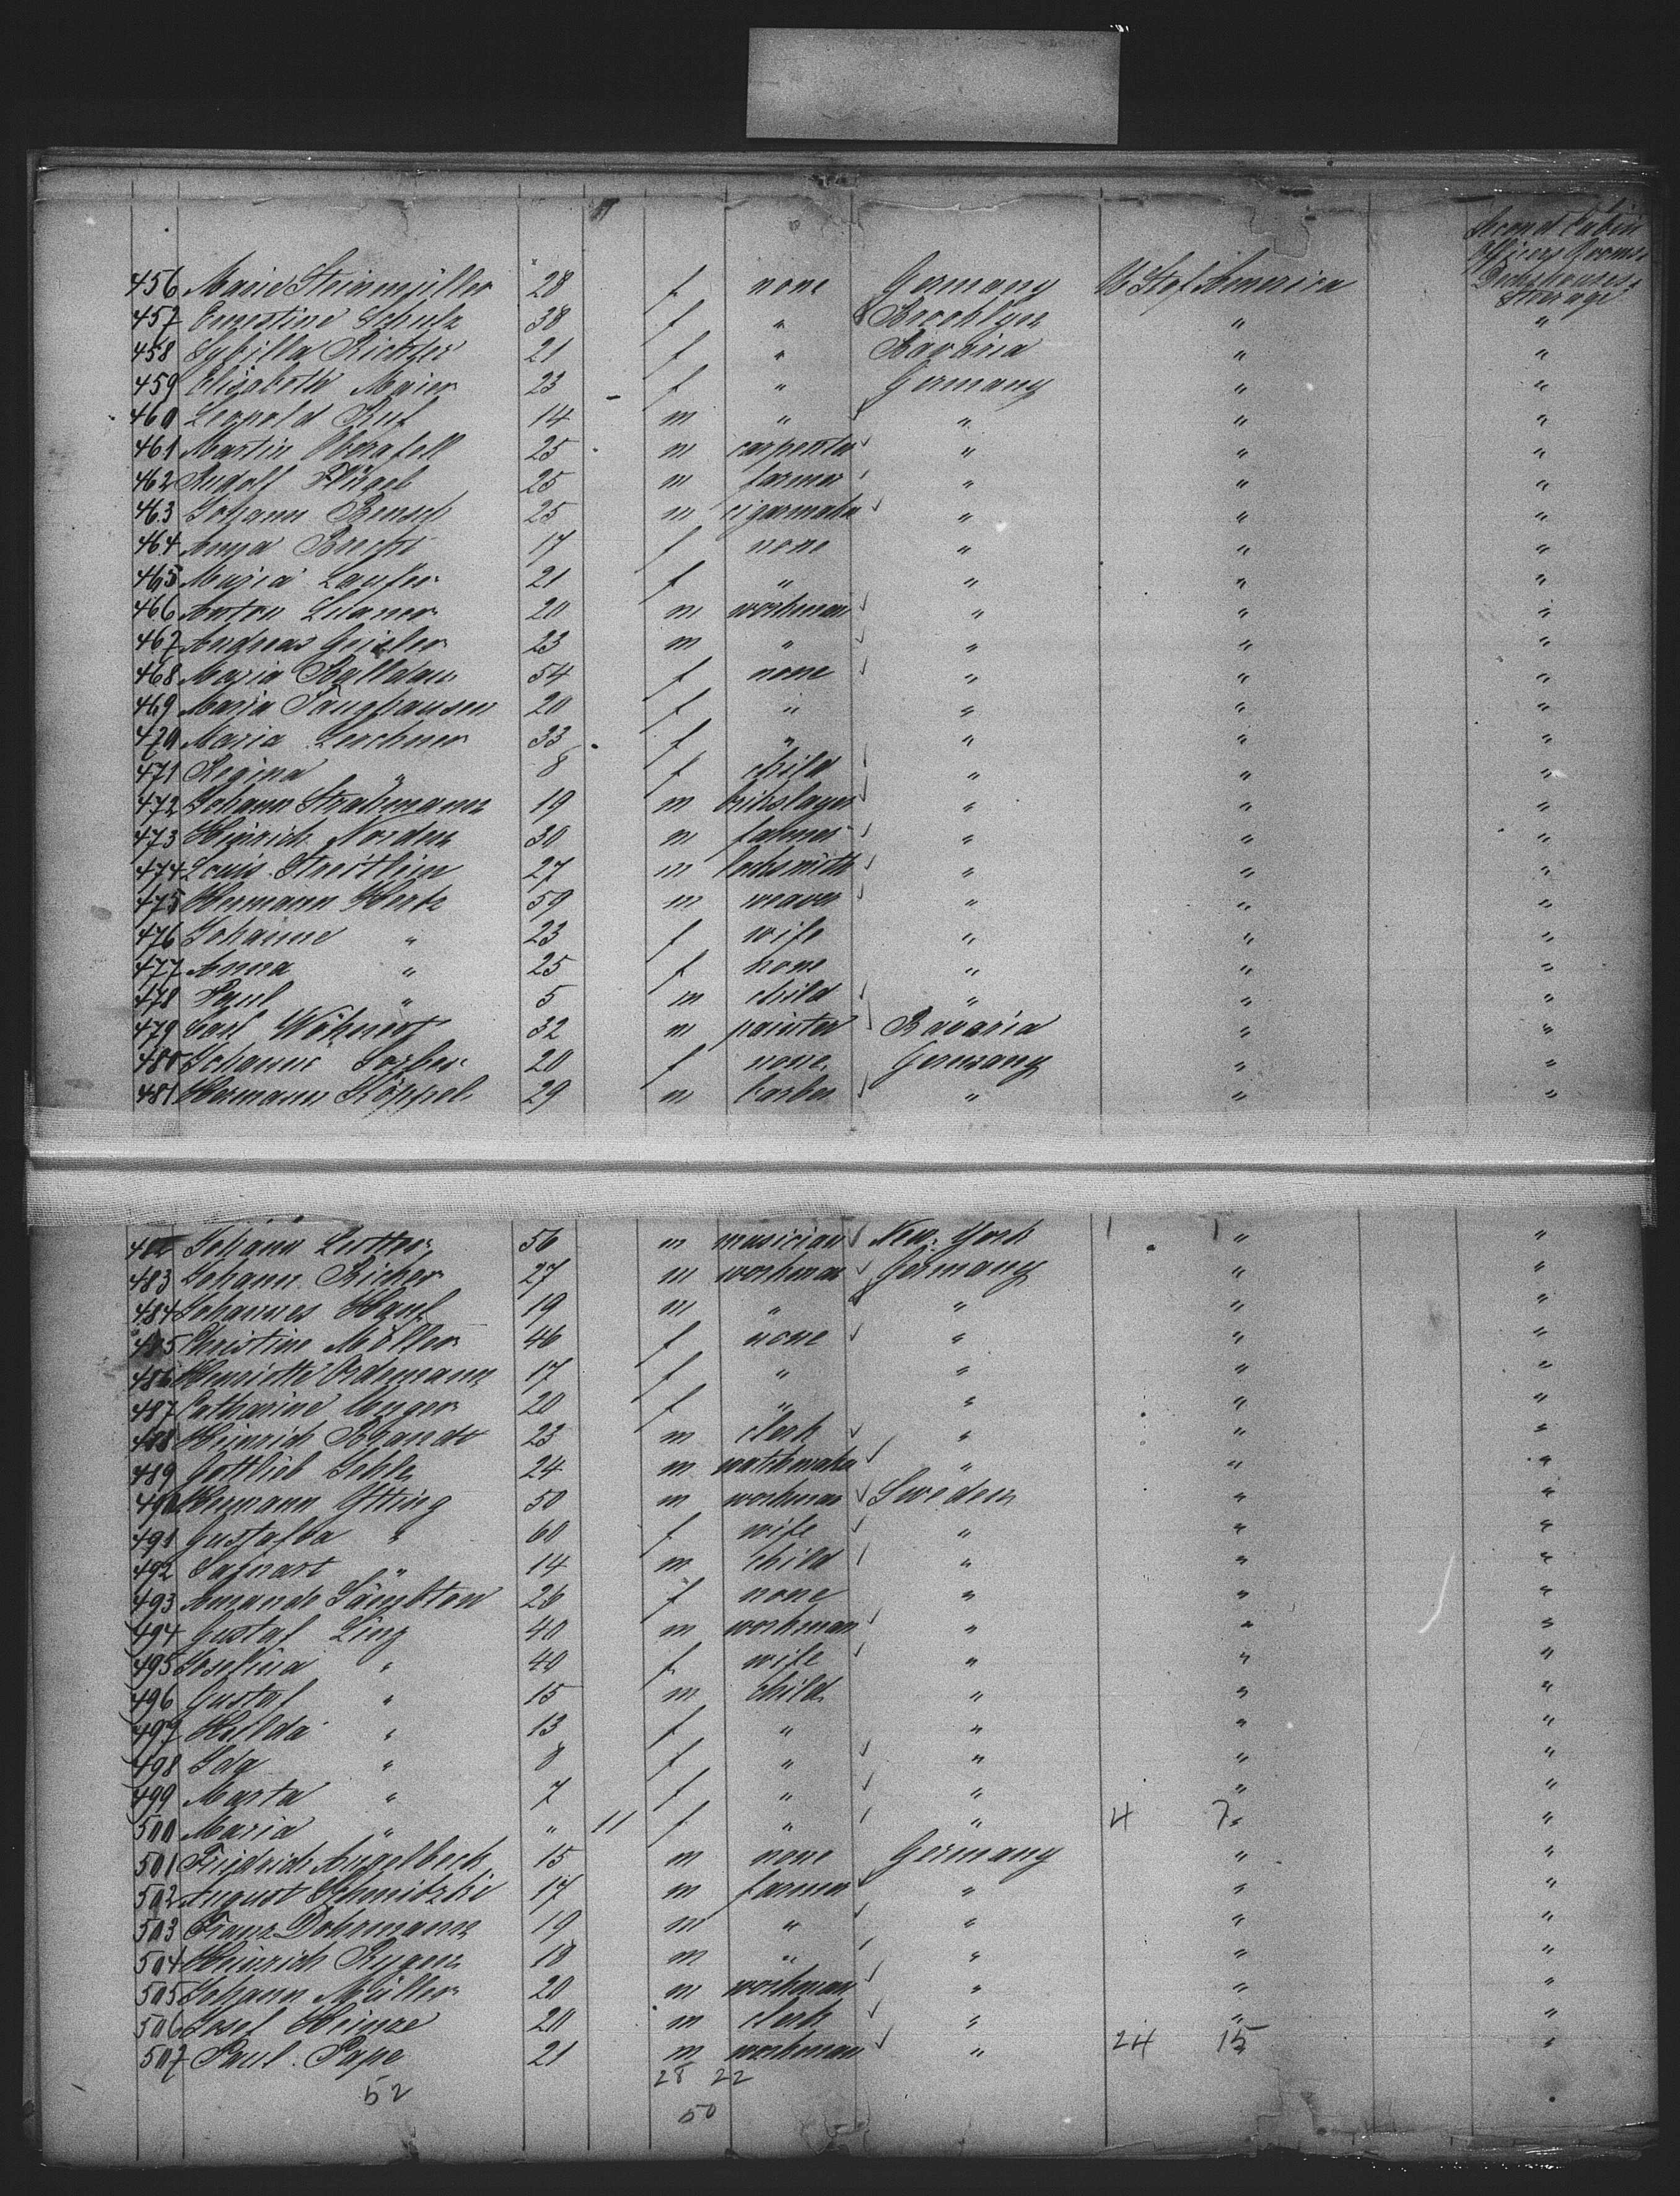 Second Cabin
Officers Rooms
Deckhouses
Steerage
456 Marie Steinmüller 28 f none Germany U St of America
457 Ernestine Schulz 38 f " Brooklyn " "
458 Sybilla Richter 21 f " Bavaria " "
459 Elisabeth Maier 23 f " Germany " "
460 Leopold Ruf 14 m " " " "
461 Martin Oberafell 25 m carpenter " " "
462 Rudolf Flügel 25 m farmer " " "
463 Johann Bensch 25 m cigarmaker " " "
464 Anna Brecht 17 f none " " "
465 Maria Laufer 21 f " " " "
466 Anton 20 m workman " " "
467 Andreas Geisler 23 m " " " "
468 Maria Balldauf 54 f none " " "
469 Maria Sanghausen 20 f " " " "
470 Maria Lerchner 33 f " " " "
471 Regina " 8 f child " " "
472 Johann Stratmann 19 m brikslager " " "
473 Hinrich Norden 30 m farmer " " "
474 Louis Streitlein 27 m locksmith " " "
475 Hermann Hertz 59 m weaver " " "
476 Johanne " 23 f wife " " "
477 Anna " 25 f none " " "
478 Paul " 5 m child " " "
479 Carl Wöhnert 32 m painter Bavaria " "
480 Johanne Sorber 20 f none Germany " "
481 Hermann Köppel 29 m barber " " "
482 Johann 56 m musician New York " "
483 Johann Richer 27 m workman Germany " "
484 Johannes Hanf 19 m " " " "
485 Christine Möller 46 f none " " "
486 Henriette Ordemann 17 f " " " "
487 Catharine Unger 20 f " " " "
488 Heinrich Brandt 23 m clerk " " "
489 Gottlieb Gehle 24 m watchmaker " " "
490 Hermann Ytting 50 m workman Sweden " "
491 Gustafva " 60 f wife " " "
492 " 14 m child " " "
493 Amanda 26 f none " " "
494 Gustaf Ling 40 m workman " " "
495 Josefina " 40 f wife " " "
496 Gustaf " 15 m child " " "
497 Hilda " 13 f " " " "
498 Ida " 8 f " " " "
499 Marta " 7 f " " " "
500 Maria " " 11 f " " 4 7 " "
501 Friedrich Angelbeck 15 m none Germany " "
502 August Schmidzki 17 m farmer " " "
503 Franz Dohrmann 19 m " " " "
504 Heinrich Rugen 18 m " " " "
505 Johann Müller 20 m workman " " "
506 Josef Heinze 20 m clerk " " "
507 Paul Pape 21 m workman " 24 15 " "
52 28 22
50